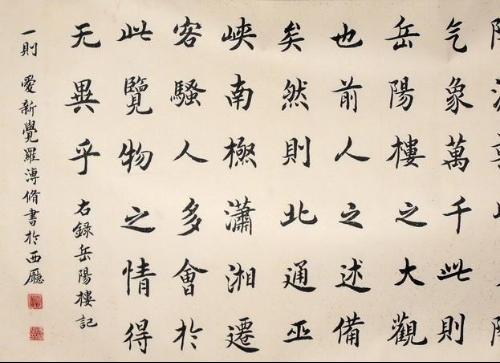 气象萬千此則
岳陽樓之大觀
也前人之述備
矣然則北通巫
峽南極瀟湘遷
客騷人多會於
此覽物之情得
无異乎 右錄岳陽樓記
一則 愛新覺羅溥脩書於西